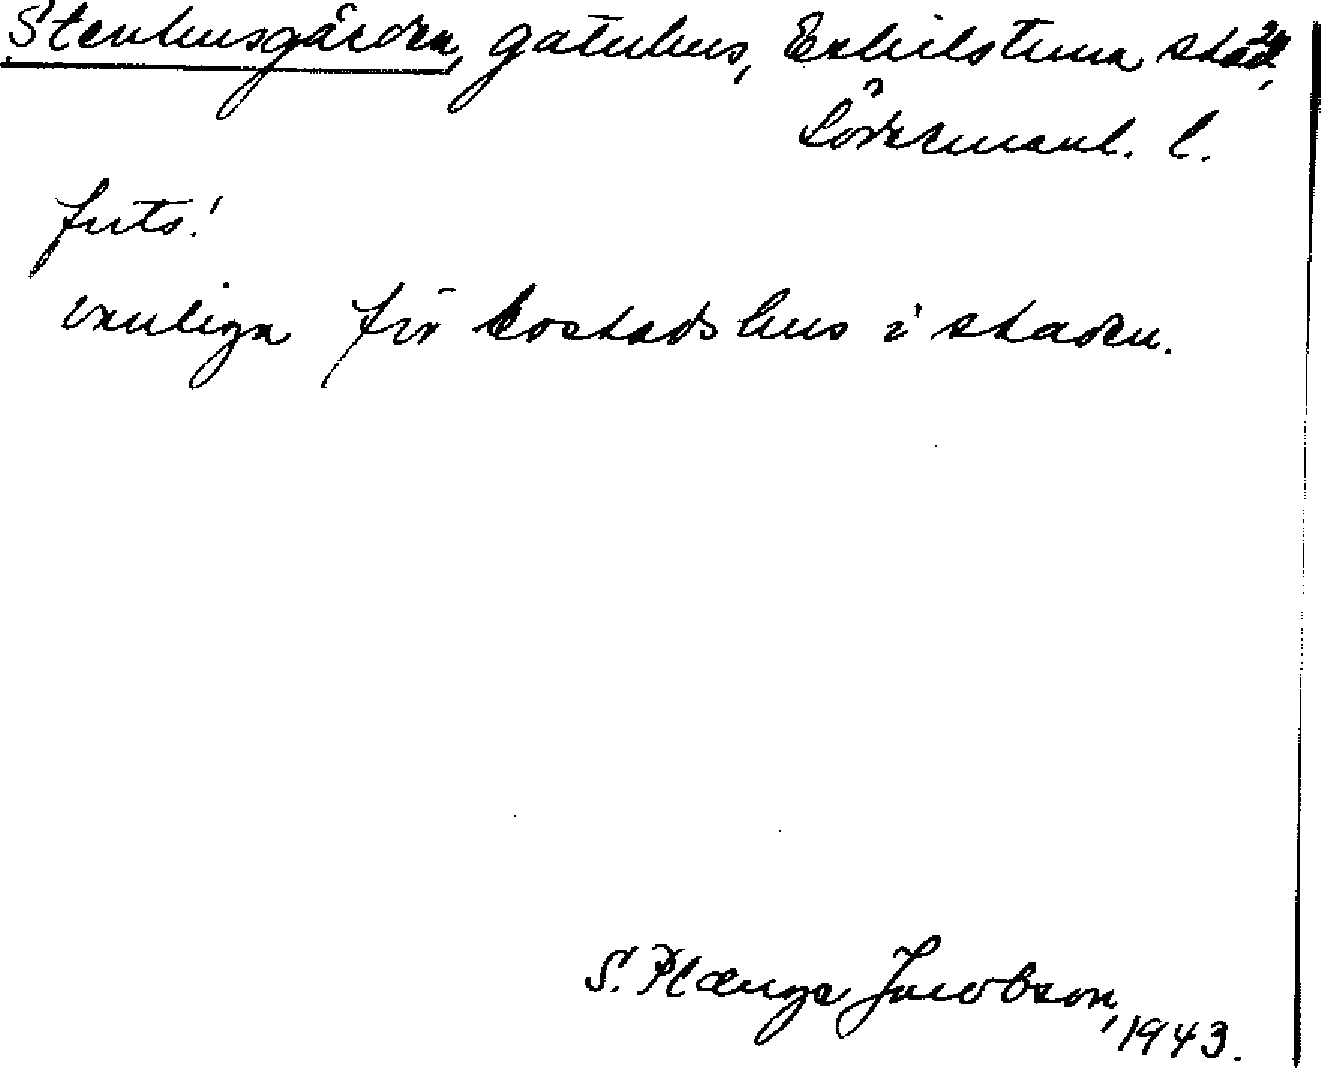 Stenhusgården, gatuhus, Eskilstuna stad,
Södermanl. l.
forts!
vanliga för bostadshus i staden.
S. Plænge Jacobson,
1943.